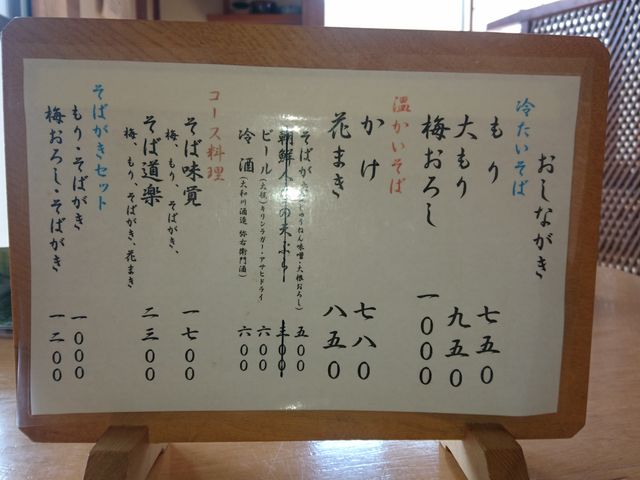 おしながき
冷たいそば
もり 七五〇
大もり 九五〇
梅おろし 一〇〇〇
温かいそば
かけ 七八〇
花まき 八五〇
そばがき(じゅうねん味噌・大根おろし) 五〇〇
朝鮮人参の天ぷら 三〇〇
ビール(大瓶)キリンラガー・アサヒドライ 六〇〇
冷酒(大和川酒造 弥右衛門酒) 六〇〇
コース料理
そば味覚 一七〇〇
梅、もり、そばがき、
そば道楽 二三〇〇
梅、もり、そばがき、花まき
そばがきセット
もり・そばがき 一〇〇〇
梅おろし・そばがき 一二〇〇